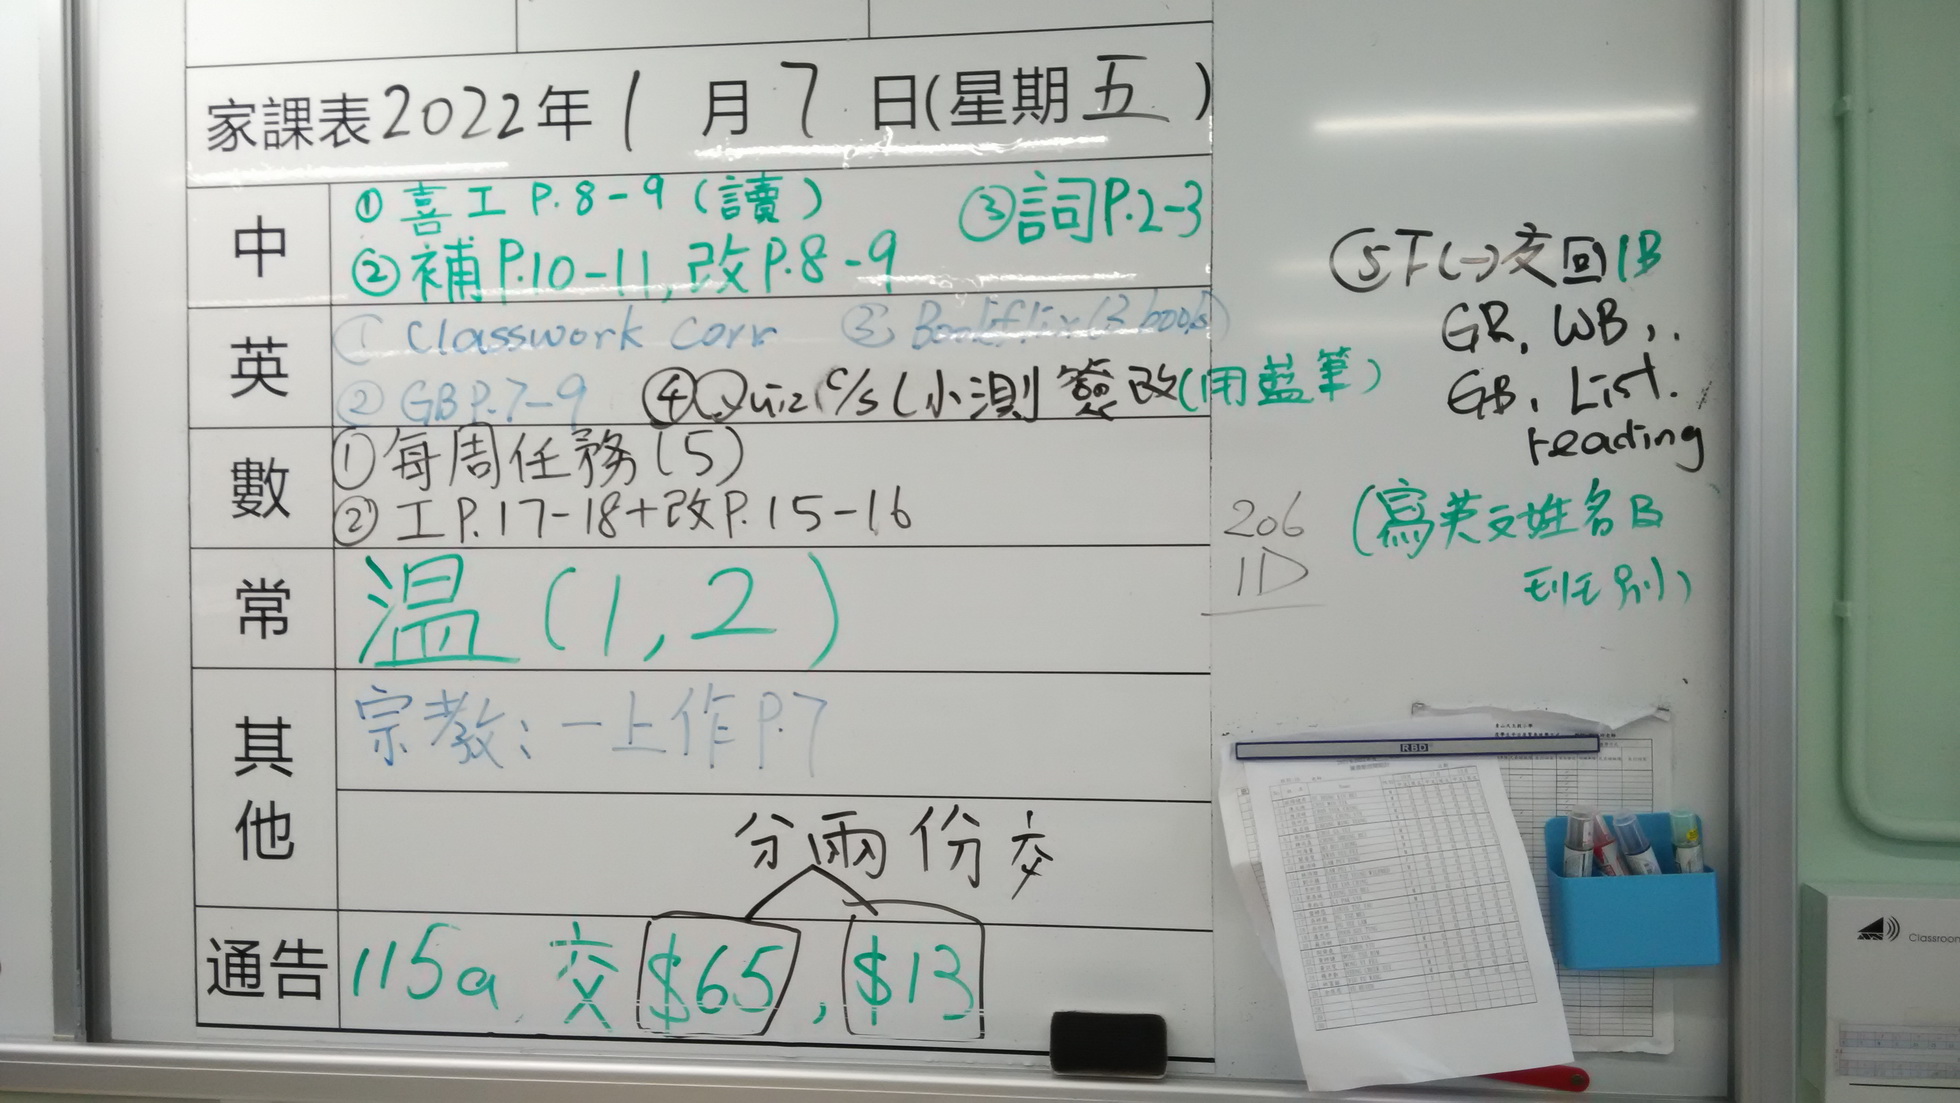 家課表2022年1月7日(星期五)
中
①喜工P.8-9(讀)
③詞P.2-3
②補P.10-11,改P.8-9
英
① Classwork Corr
③ Bookflix (2 books)
② GB P.7-9
④Quiz C/S(小測簽改(用藍筆)
⑤下(一)交回1B
GR, WB,
GB, List.
reading
(寫英文姓名及
班別)
數
①每周任務(5)
②工P.17-18+改P.15-16
206
1D
常
溫(1,2)
其他
宗教:一上作P.7
分兩份交
通告
115a 交 $65, $13
RBD
Classroom